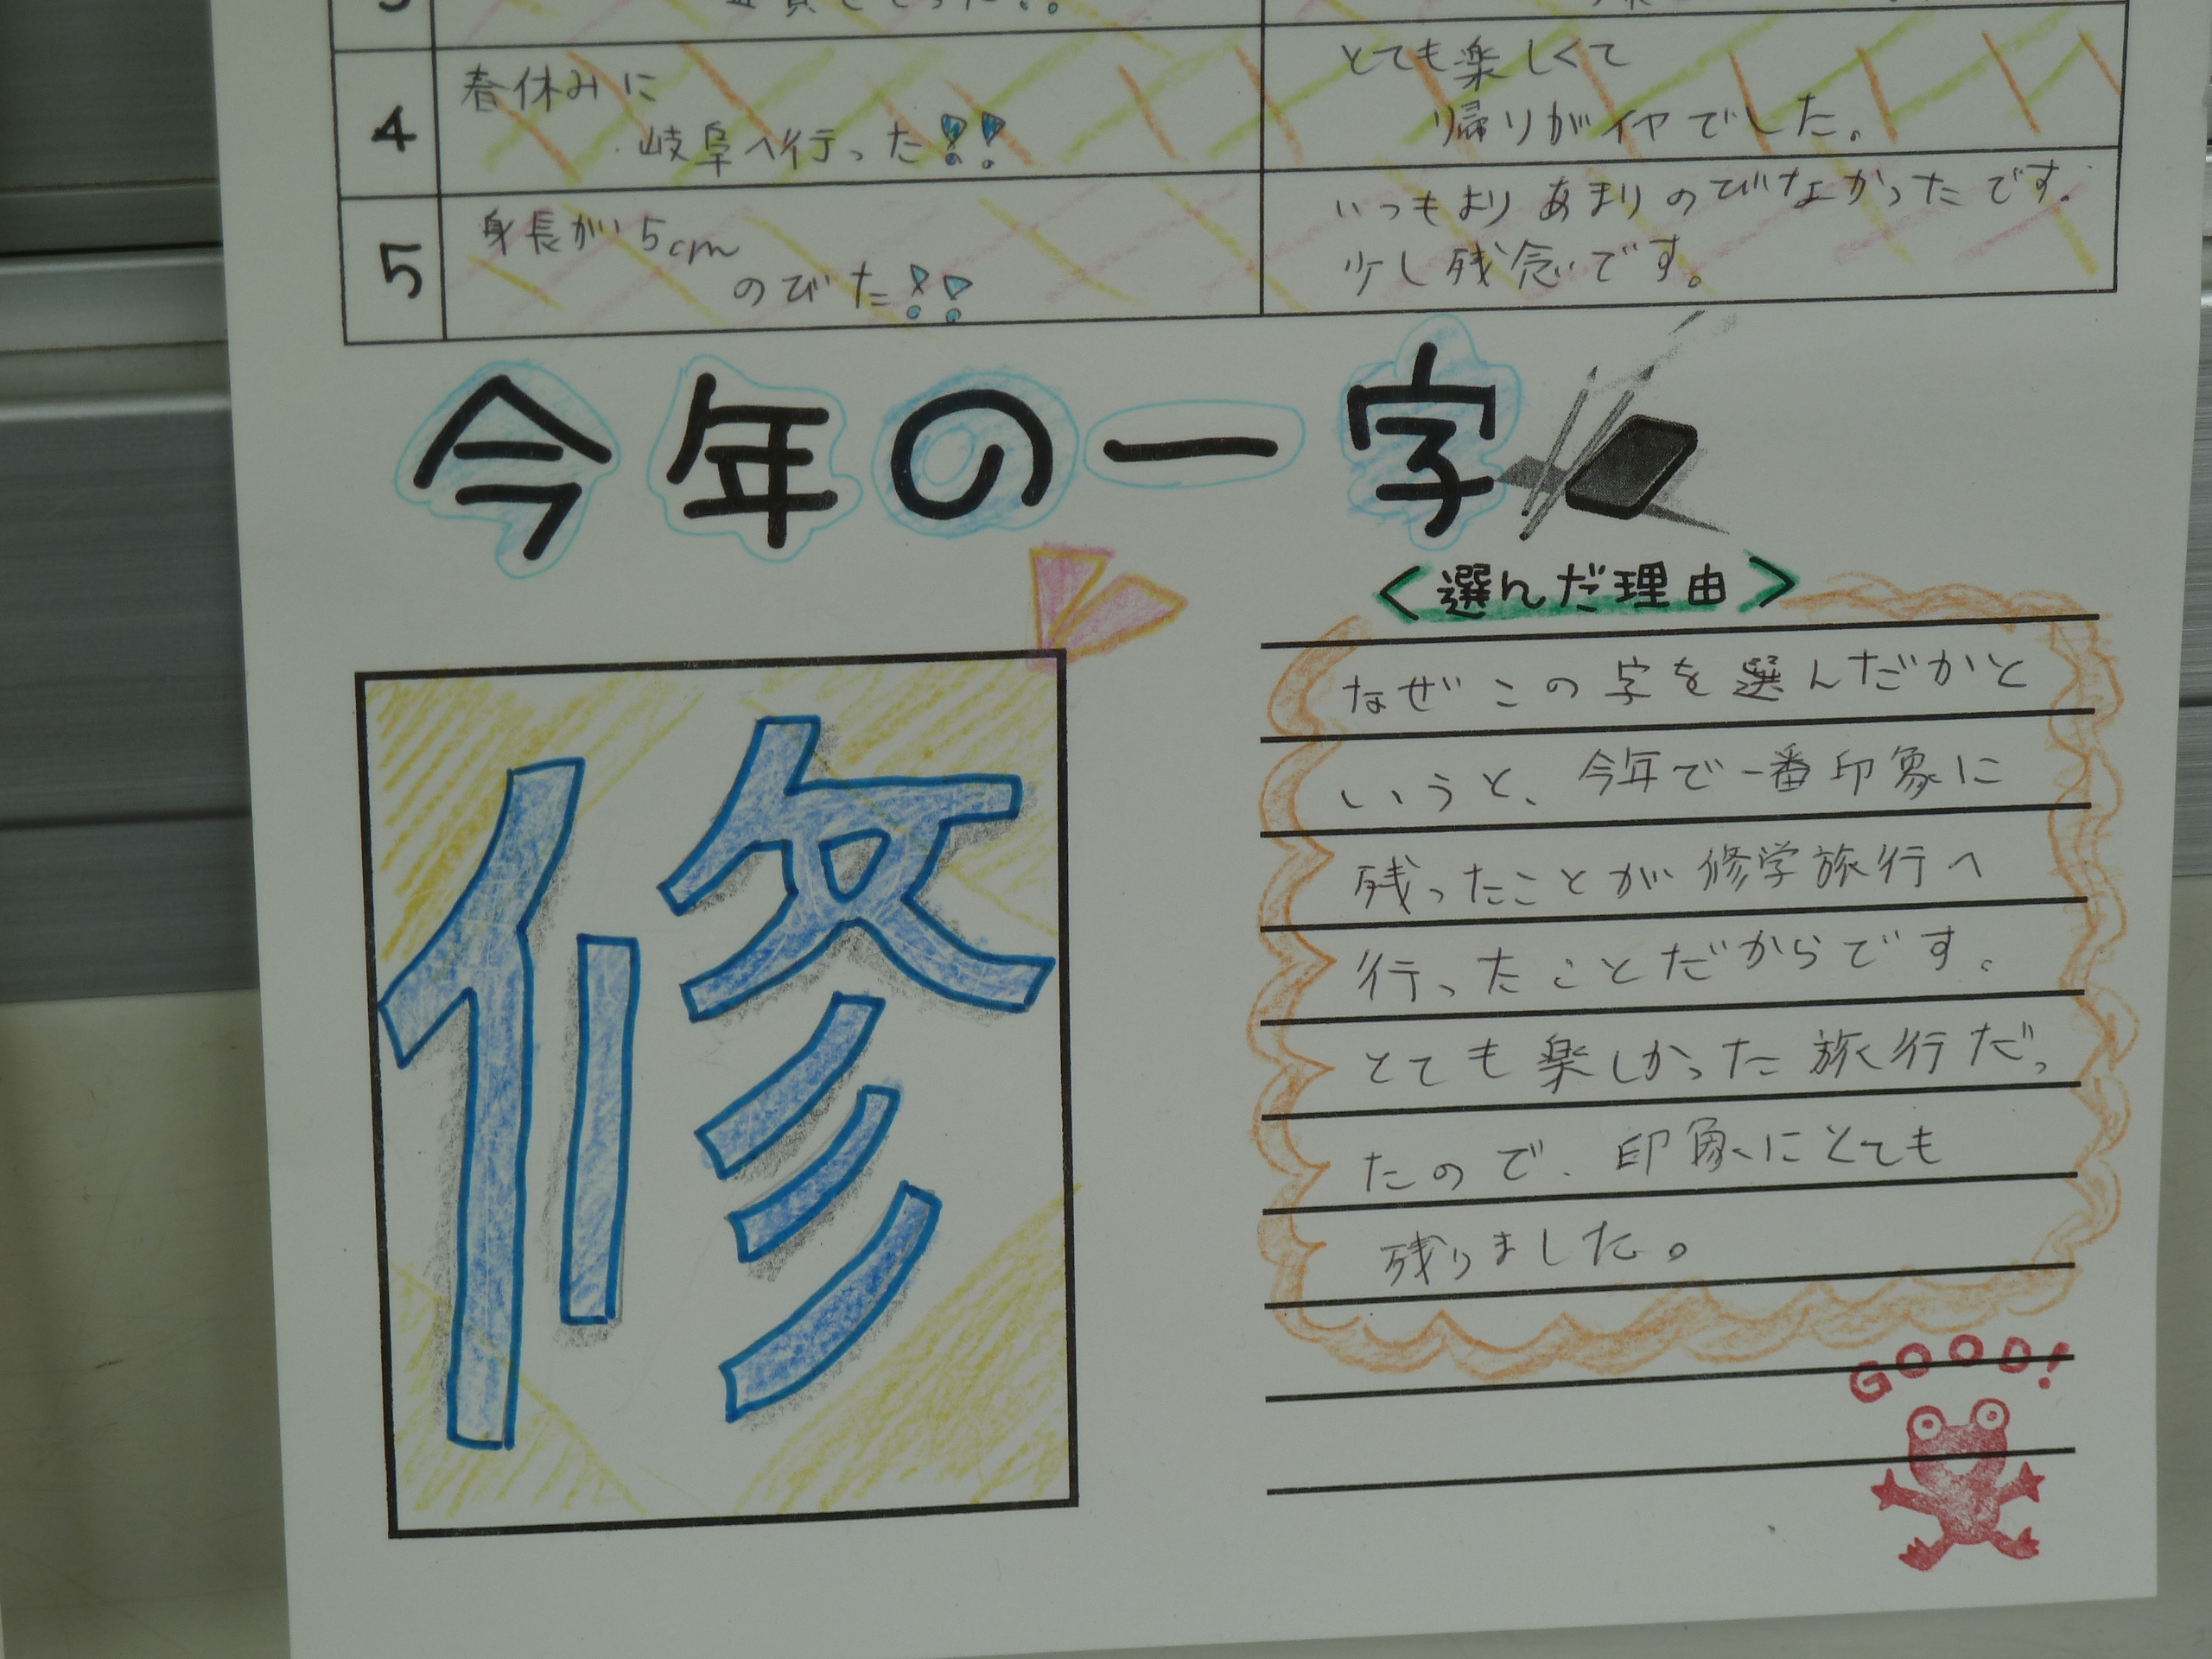 4
春休みに
岐阜へ行った!!
とても楽しくて
帰りがイヤでした。
5
身長が5cm
のびた!!
いつもよりあまりのびなかったです。
少し残念です。
今年の一字
<選んだ理由>
修
なぜこの字を選んだかと
いうと、今年で一番印象に
残ったことが修学旅行へ
行ったことだからです。
とても楽しかった旅行だっ
たので、印象にとても
残りました。
GOOD!